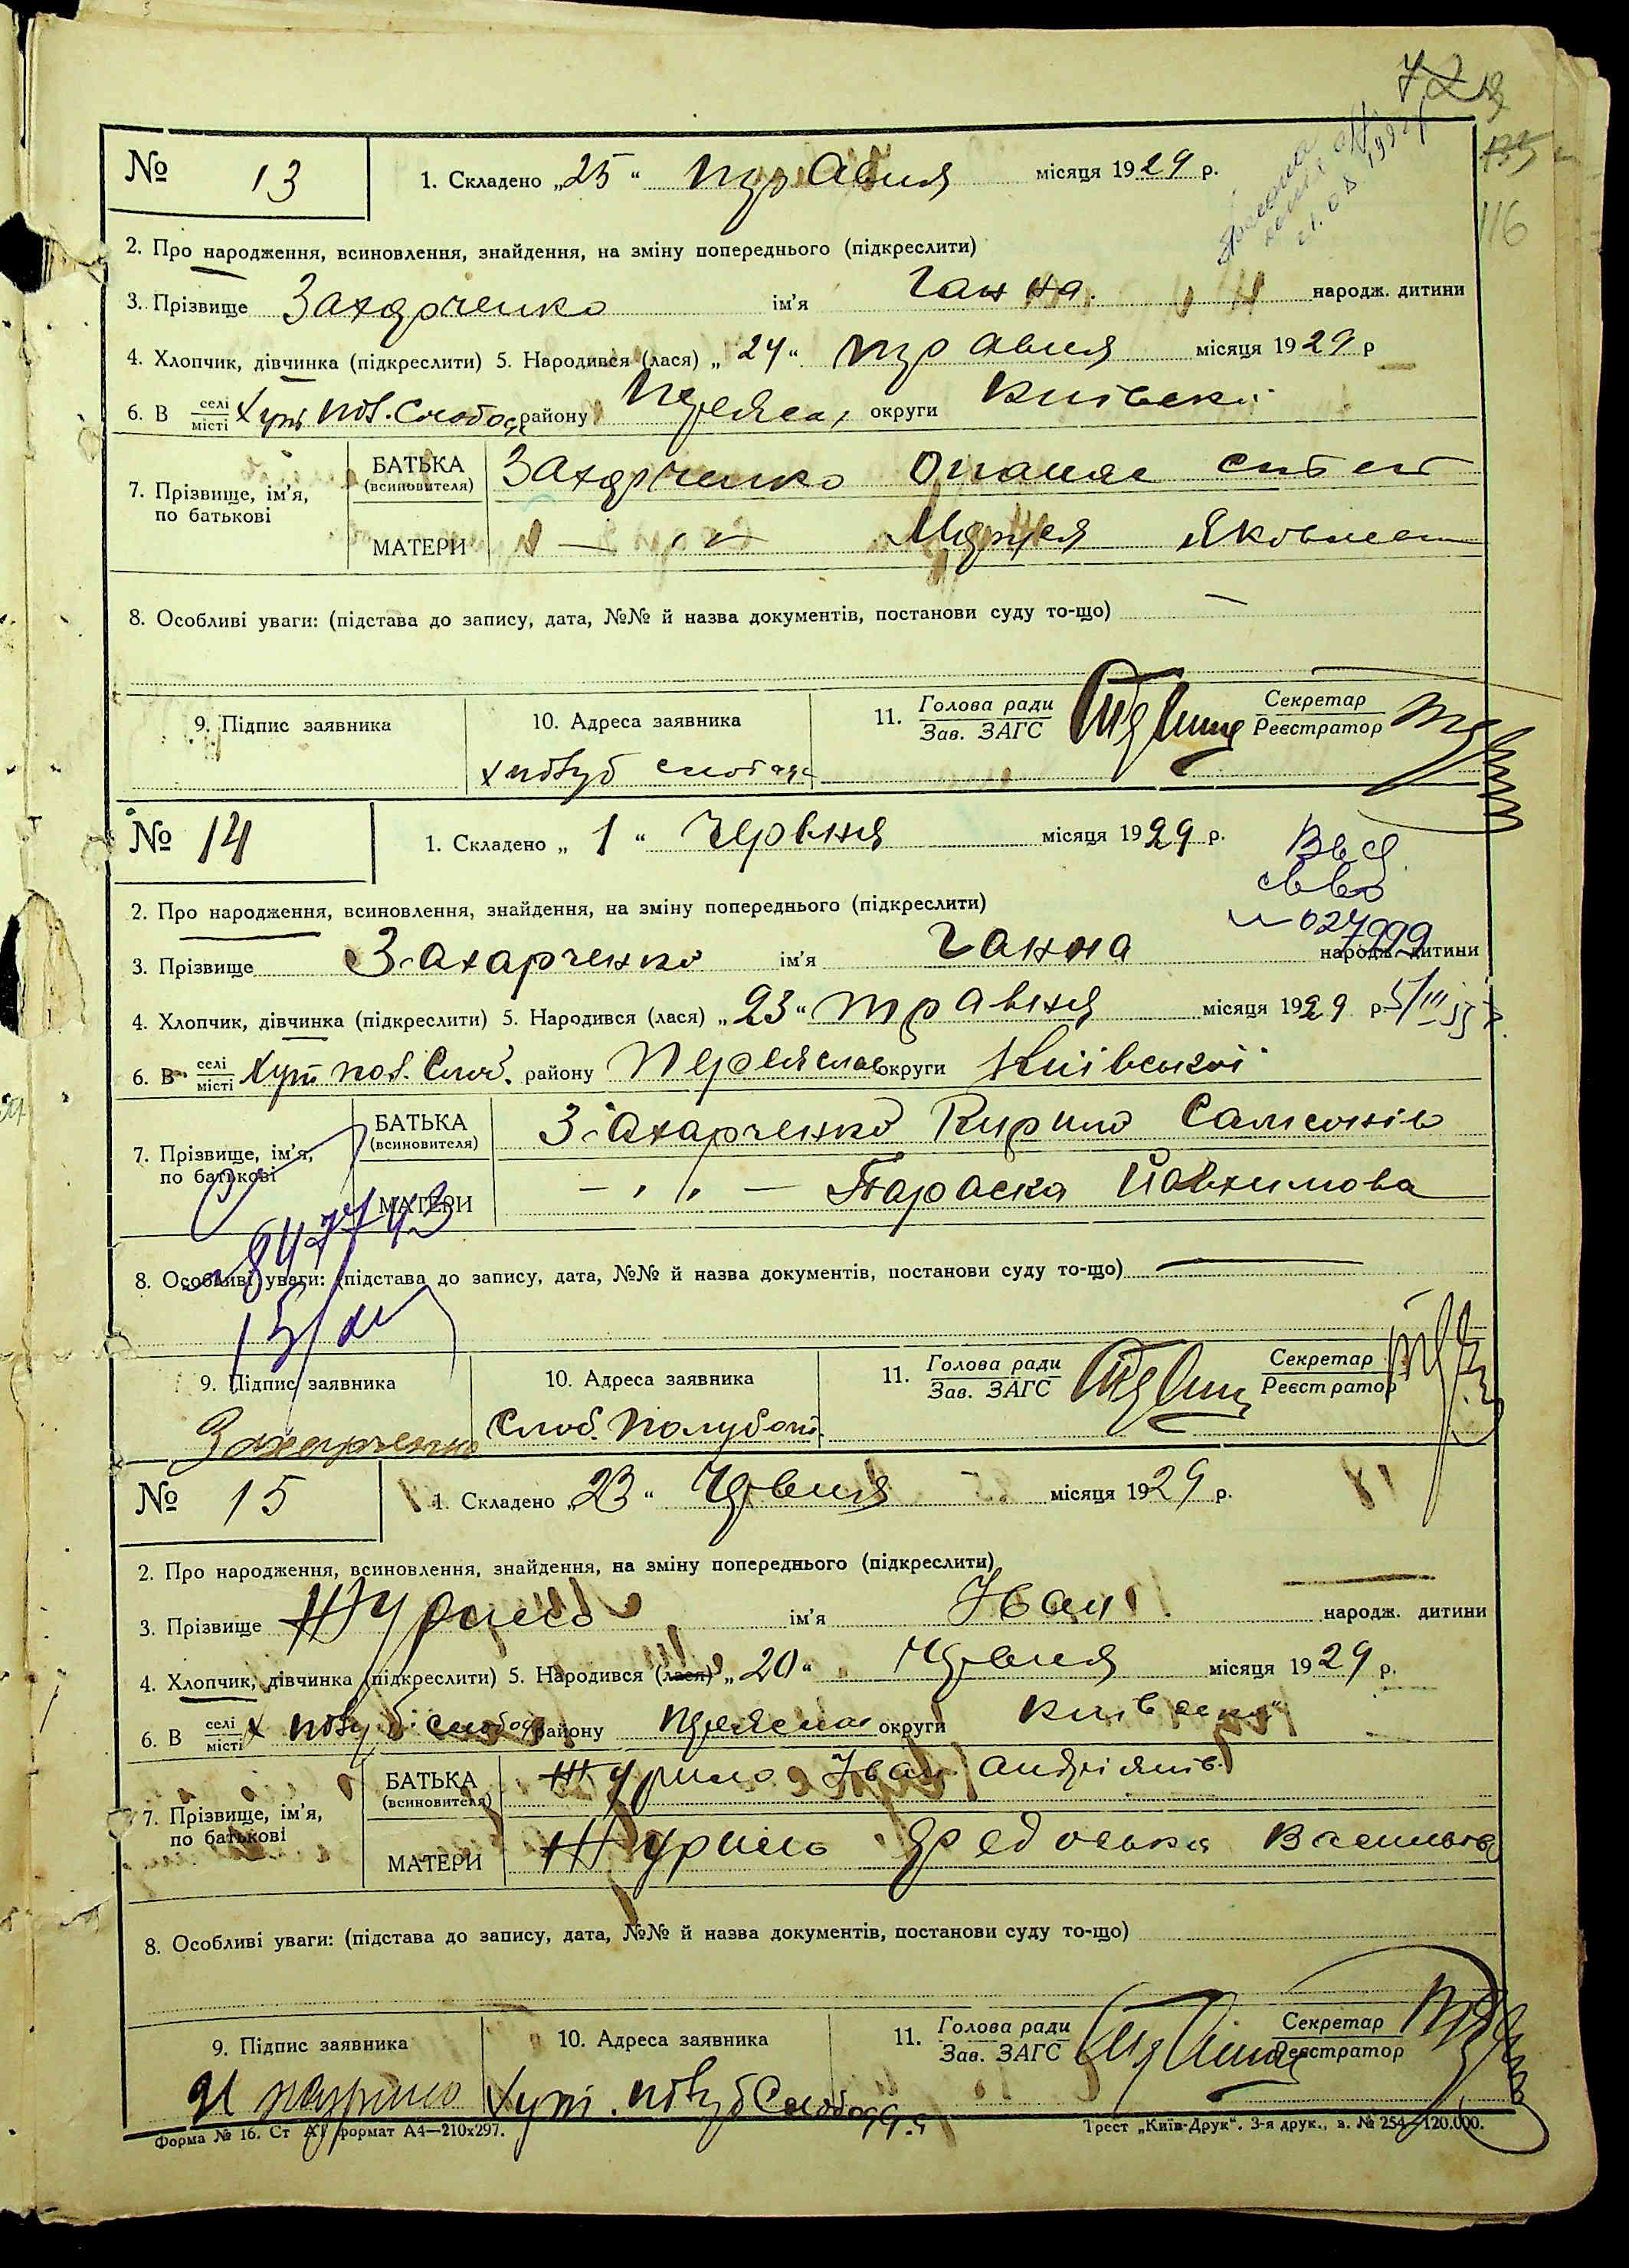 72
116
№ 13 1. Складено „25“ травня місяця 1929 р.
2. Про народження, всиновлення, знайдення, на зміну попереднього (підкреслити)
3. Прізвище Захарченко ім'я Ганна народж. дитини
4. Хлопчик, дівчинка (підкреслити) 5. Народився (лася) „24“ травня місяця 1929 р
6. В селі/місті Хут. Пол. Слобод району Переяслав округи Київської
7. Прізвище, ім'я, по батькові
БАТЬКА (всиновителя) Захарченко Опанас
МАТЕРИ — „ — Марія Яковлев
8. Особливі уваги: (підстава до запису, дата, №№ й назва документів, постанови суду то-що) —
9. Підпис заявника 10. Адреса заявника 11. Голова ради/Зав. ЗАГС Секретар/Реєстратор
х Полуб слобода
№ 14 1. Складено „1“ червня місяця 1929 р.
Выд.
св-во
№ 027999
2. Про народження, всиновлення, знайдення, на зміну попереднього (підкреслити)
3. Прізвище Захарченко ім'я Ганна народж. дитини
4. Хлопчик, дівчинка (підкреслити) 5. Народився (лася) „23“ травня місяця 1929 р
6. В селі/місті Хут. Пол. Слоб. району Переяслав округи Київської
7. Прізвище, ім'я, по батькові
БАТЬКА (всиновителя) Захарченко Кирило Самсонів
МАТЕРИ — „ — Параска Йовхимова
8. Особливі уваги: (підстава до запису, дата, №№ й назва документів, постанови суду то-що) —
9. Підпис заявника 10. Адреса заявника 11. Голова ради/Зав. ЗАГС Секретар/Реєстратор
Захарченко Слоб. Полубот.
№ 15 1. Складено „23“ Червня місяця 1929 р.
2. Про народження, всиновлення, знайдення, на зміну попереднього (підкреслити)
3. Прізвище Журило ім'я Іван народж. дитини
4. Хлопчик, дівчинка (підкреслити) 5. Народився (лася) „20“ Червня місяця 1929 р.
6. В селі/місті х Полуб. слобода району Переяслав округи Київської
7. Прізвище, ім'я, по батькові
БАТЬКА (всиновителя) Журило Іван Андріянів
МАТЕРИ Журило Федоська Васильова
8. Особливі уваги: (підстава до запису, дата, №№ й назва документів, постанови суду то-що)
9. Підпис заявника 10. Адреса заявника 11. Голова ради/Зав. ЗАГС Секретар/Реєстратор
И Журило Хут. Полуб Слобода
Форма № 16. Ст А1 формат А4—210х297. Трест „Київ-Друк“. 3-я друк., з. № 254—120.000.